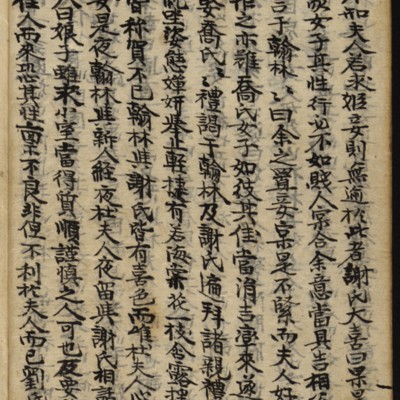 不知夫人若求姬妾則無逾於此者謝氏大喜曰果
族女子其性行必不如賤人宗合余意當具吉相
言于翰林〻曰余之置妾果是不緊而夫人好
作之亦難喬氏女子如彼其佳當涓吉率來遂
娶喬氏〻禮謁于翰林及謝氏遍拜諸親禮
訖坐姿態嬋妍舉止輕捷有若海棠花一枝含露
皆称賀不已翰林與謝氏皆有喜色而惟杜夫人心
安是夜翰林與新人經夜杜夫人夜留與謝氏相話
人曰娘子雖求小室當得質順謹愼之人可也及娶
佳人而來恐其性不良非但不利於夫人而已劉